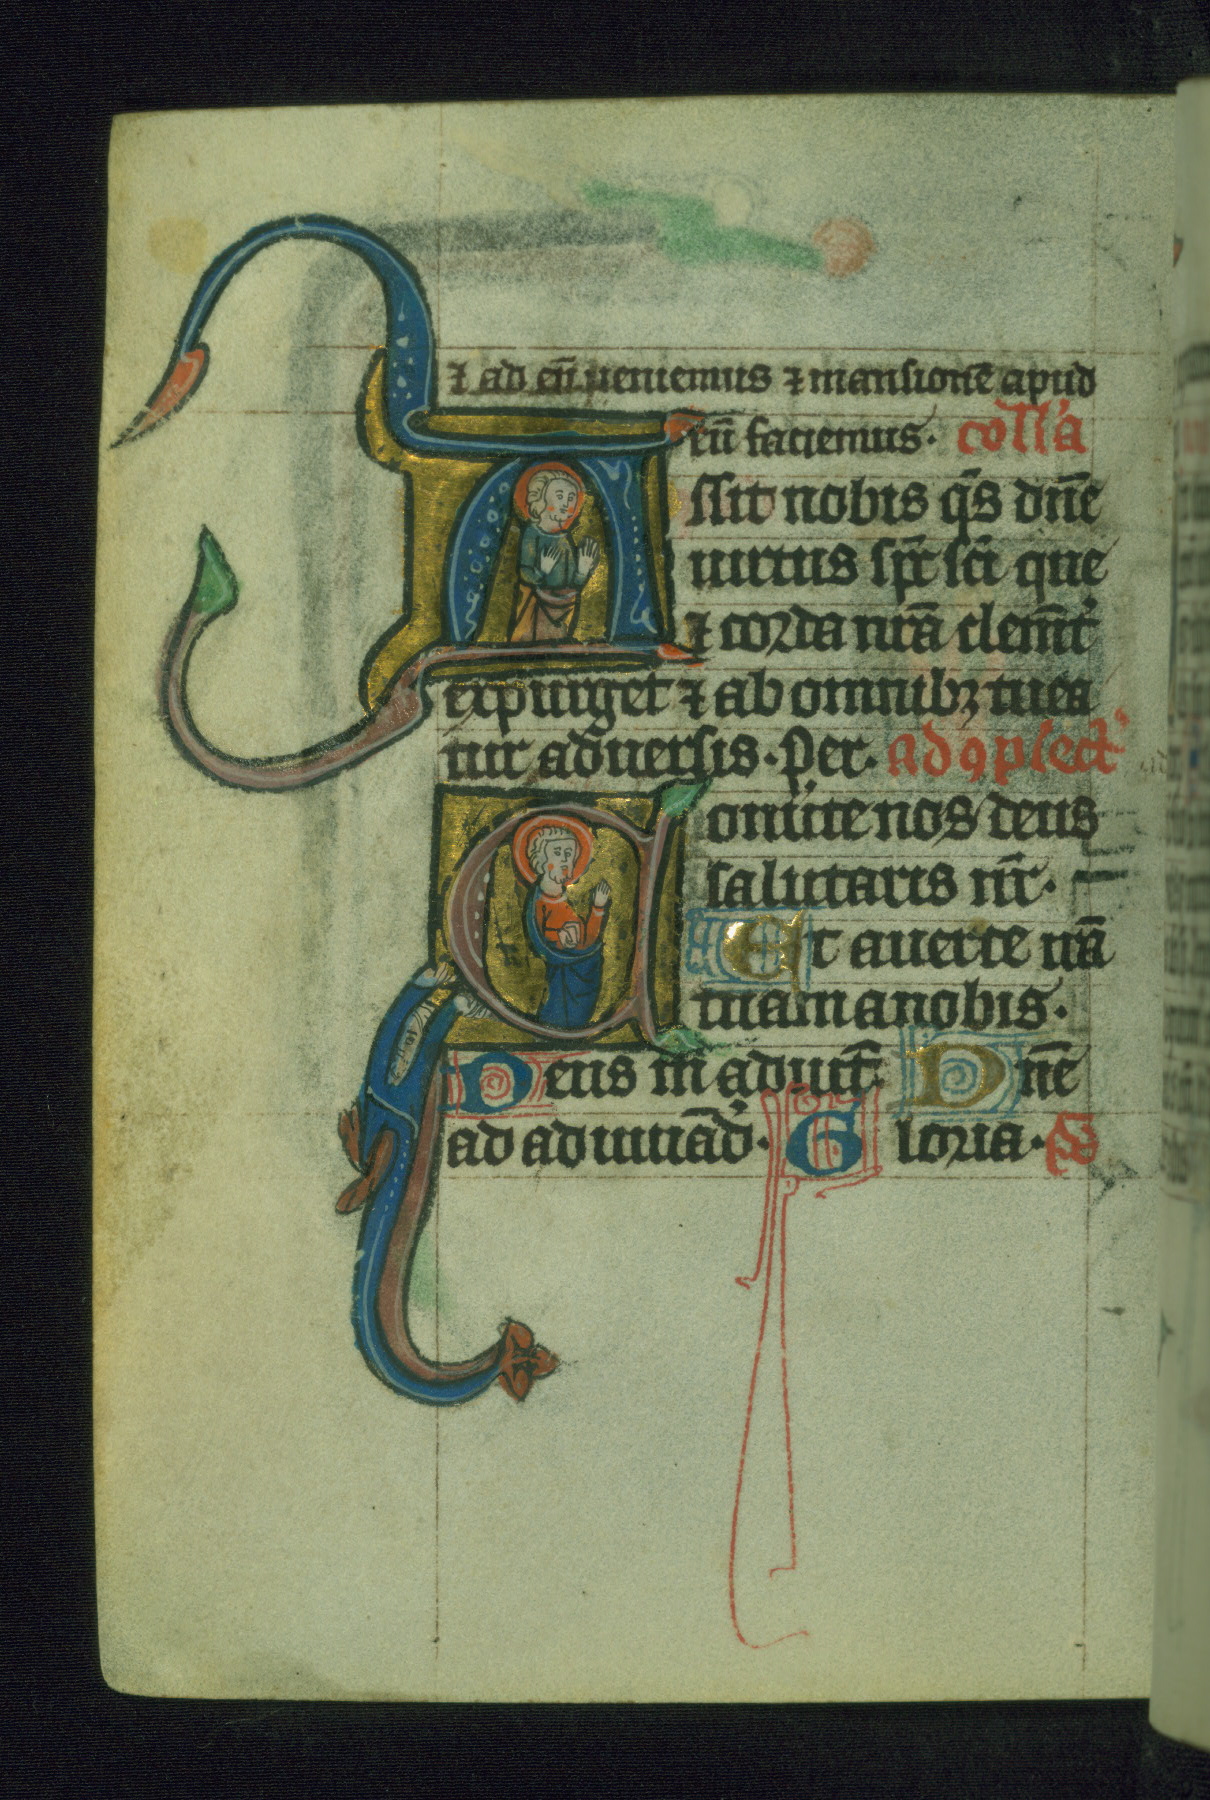 ⁊ ad eū ueniemus ⁊ mansionē apud
eū faciemus. coll'a
Assit nobis q̄s dn̄e
uirtus sp̄c sc̄i que
⁊ corda nr̄a clem̄t'
expurget ⁊ ab omnibꝫ tuea
tur aduersis. Per. ad ꝯplect'
Conuite nos deus
salutaris nr̄.
Et auerte irā
tuam a nobis.
Deus in adiut̄. Dn̄e
ad adiuuād'. Gloria. ps̄